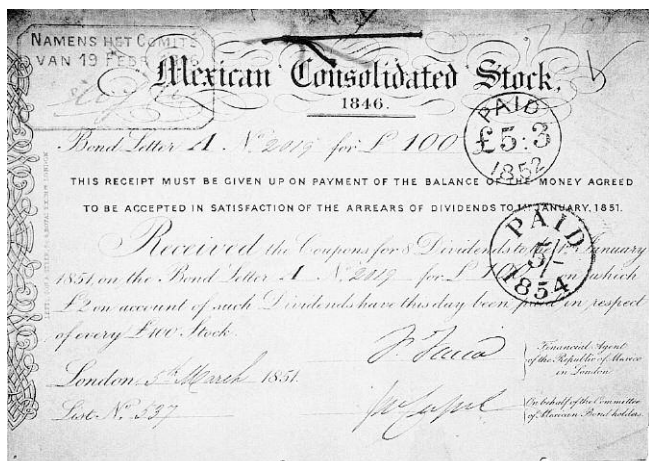 NAMENS HET COMITÉ
VAN 19 FEBR
Mexican Consolidated Stock,
1846.
Bond Letter A No. 2019 for £ 100
PAID
£5:3
1852
THIS RECEIPT MUST BE GIVEN UP ON PAYMENT OF THE BALANCE OF THE MONEY AGREED
TO BE ACCEPTED IN SATISFACTION OF THE ARREARS OF DIVIDENDS TO 1ST JANUARY, 1851.
PAID
5/-
1854
Received the Coupons for 8 Dividends to the 1st January
1851, on the Bond Letter A No. 2019 for £ on which
£2 on account of such Dividends have this day been paid in respect
of every £100 Stock.
London 5th March 1851.
List No. 537
Financial Agent
of the Republic of Mexico
in London
On behalf of the Committee
of Mexican Bondholders.